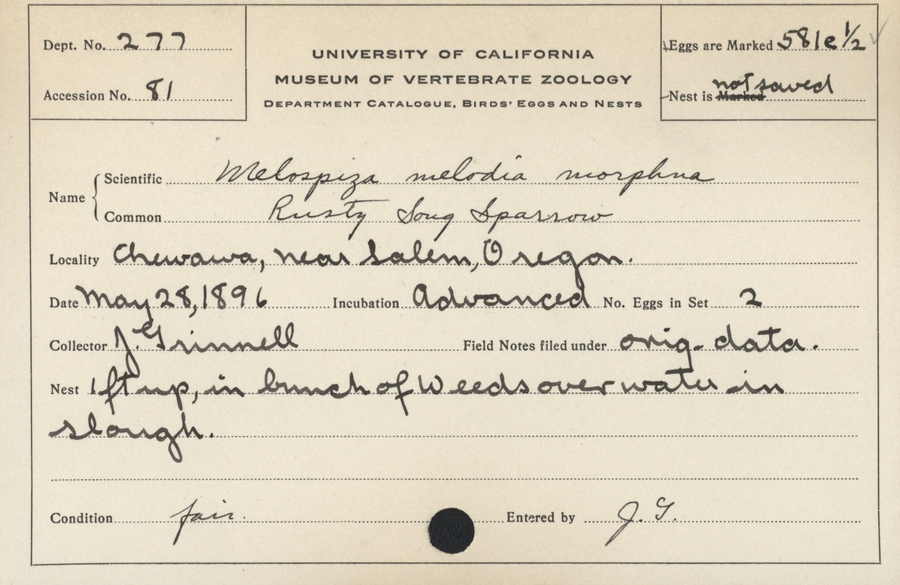 Dept. No. 277
Accession No. 81
UNIVERSITY OF CALIFORNIA
MUSEUM OF VERTEBRATE ZOOLOGY
DEPARTMENT CATALOGUE, BIRDS' EGGS AND NESTS
Eggs are Marked 581e 1/2
not saved
Nest is Marked
Name
Scientific Melospiza melodia morphna
Common Rusty Song Sparrow
Locality Chewawa, near Salem, Oregon.
Date May 28, 1896 Incubation Advanced No. Eggs in Set 2
Collector J. Grinnell Field Notes filed under orig. data.
Nest 1 ft up, in bunch of weeds over water in
slough.
Condition fair. Entered by J. G.